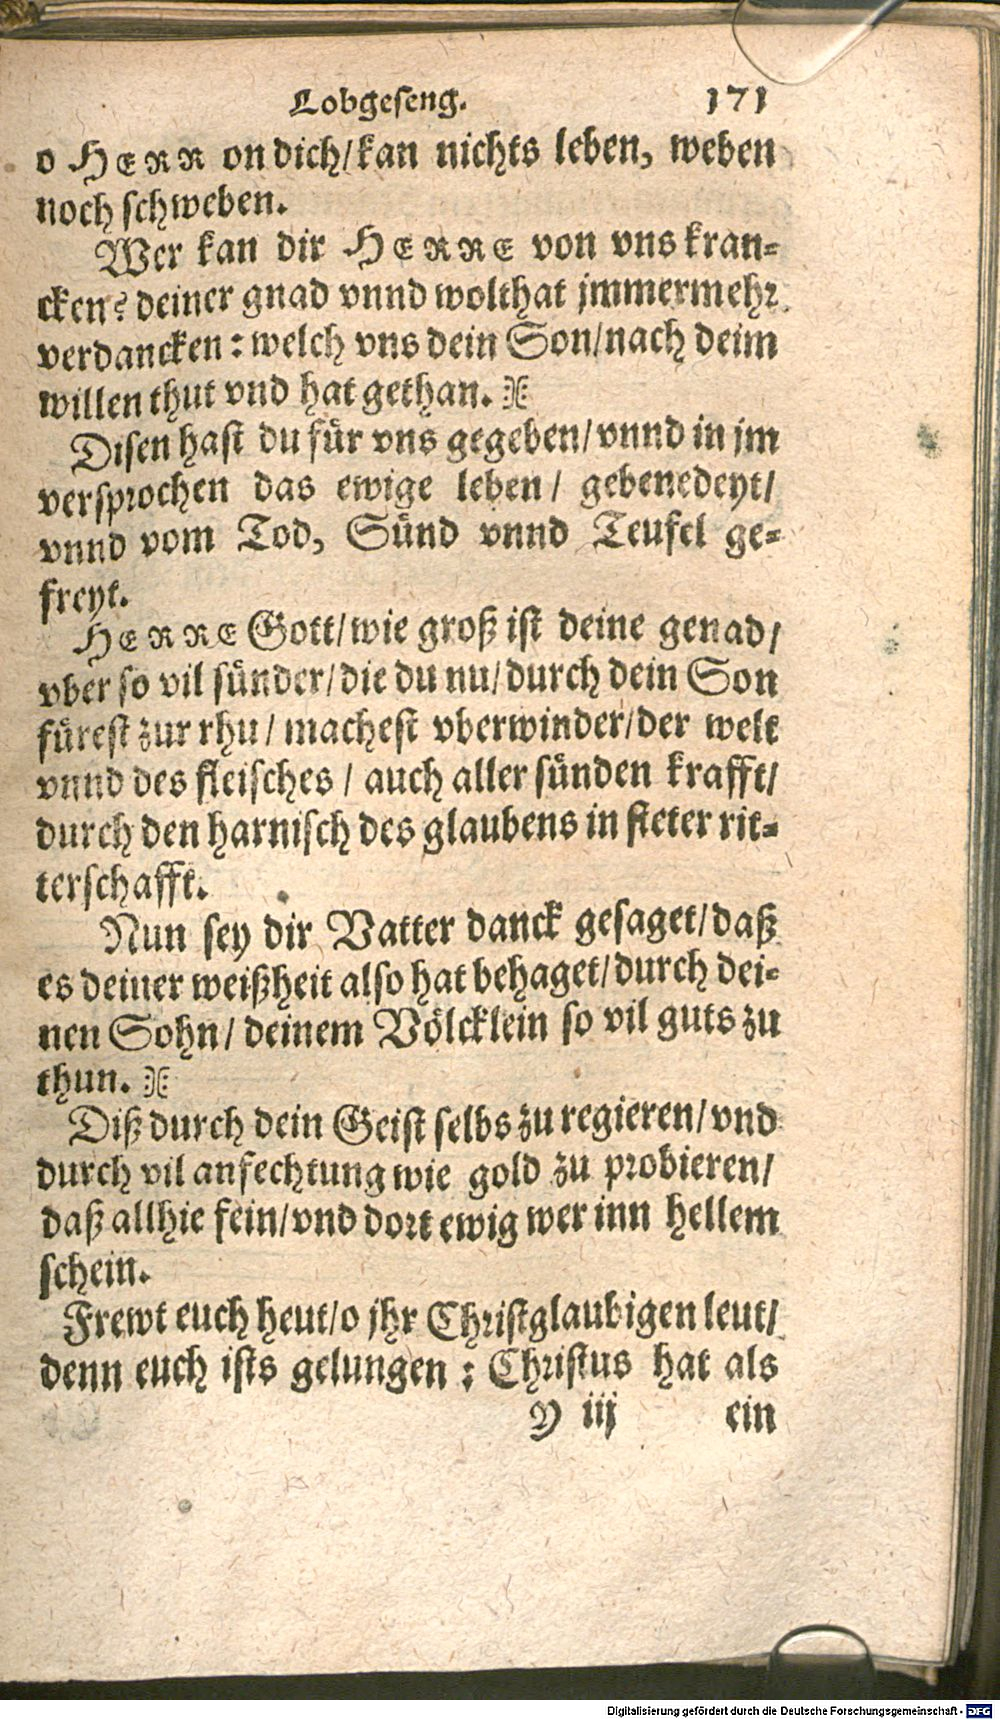 Lobgeseng. 171
o HERR on dich/kan nichts leben, weben
noch schweben.
Wer kan dir HERRE von vns kran-
cken? deiner gnad vnnd wolthat jmmermehr
verdancken: welch vns dein Son/nach deim
willen thut vnd hat gethan.
Disen hast du für vns gegeben/vnnd in jm
versprochen das ewige leben/ gebenedeyt/
vnnd vom Tod, Sünd vnnd Teufel ge-
freyt.
HERRE Gott/wie groß ist deine genad/
vber so vil sünder/die du nu/durch dein Son
fürest zur rhu/ machest vberwinder/der welt
vnnd des fleisches/ auch aller sünden krafft/
durch den harnisch des glaubens in steter rit-
terschafft.
Nun sey dir Vatter danck gesaget/daß
es deiner weißheit also hat behaget/durch dei-
nen Sohn/ deinem Völcklein so vil guts zu
thun.
Diß durch dein Geist selbs zu regieren/vnd
durch vil anfechtung wie gold zu probieren/
daß allhie fein/vnd dort ewig wer inn hellem
schein.
Frewt euch heut/o jhr Christglaubigen leut/
denn euch ists gelungen: Christus hat als
Y iij ein
Digitalisierung gefördert durch die Deutsche Forschungsgemeinschaft - DFG